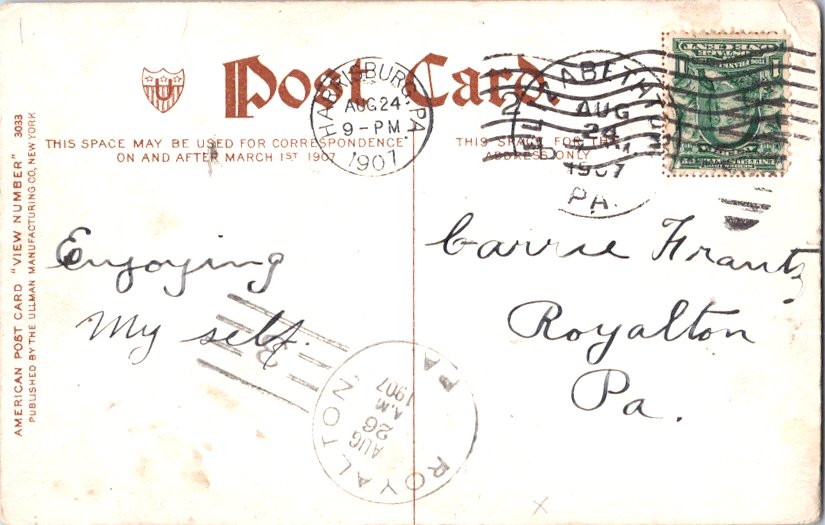 Post Card
THIS SPACE MAY BE USED FOR CORRESPONDENCE
ON AND AFTER MARCH 1ST 1907
THIS SPACE FOR THE
ADDRESS ONLY
AMERICAN POST CARD "VIEW NUMBER" 3033
PUBLISHED BY THE ULLMAN MANUFACTURING CO., NEW YORK
U
HARRISBURG, PA.
AUG 24
9-PM
1907
2
ELIZABETHTOWN
AUG
24
1907
PA.
ONE CENT
1
1
Enjoying
My self.
Carrie Frantz
Royalton
Pa.
ROYALTON
PA
AUG
26
A.M.
1907